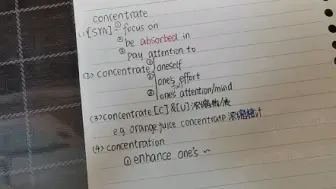 concentrate
(1) [SYN] ① focus on
② be absorbed in
③ pay attention to
(2) concentrate oneself
one's effort
one's attention/mind
(3) concentrate [C] & [U] 浓缩物/液
e.g. orange juice concentrate 浓缩橙汁
(4) concentration
① enhance one's ~